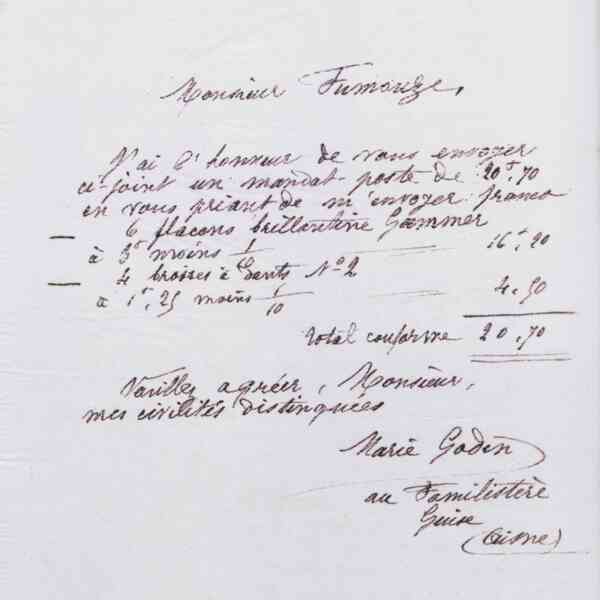 Monsieur Fumouze,
J'ai l'honneur de vous envoyer
ci-joint un mandat-poste de 20f,70
en vous priant de m'envoyer franco
6 flacons brillantine Goemmer
à 3f moins 1/10 16f,20
4 brosses à Gants No 2
à 1f,25 moins 1/10 4,50
Total conforme 20,70
Veuillez agréer, Monsieur,
mes civilités distinguées
Marie Godin
au Familistère
Guise
(Aisne)